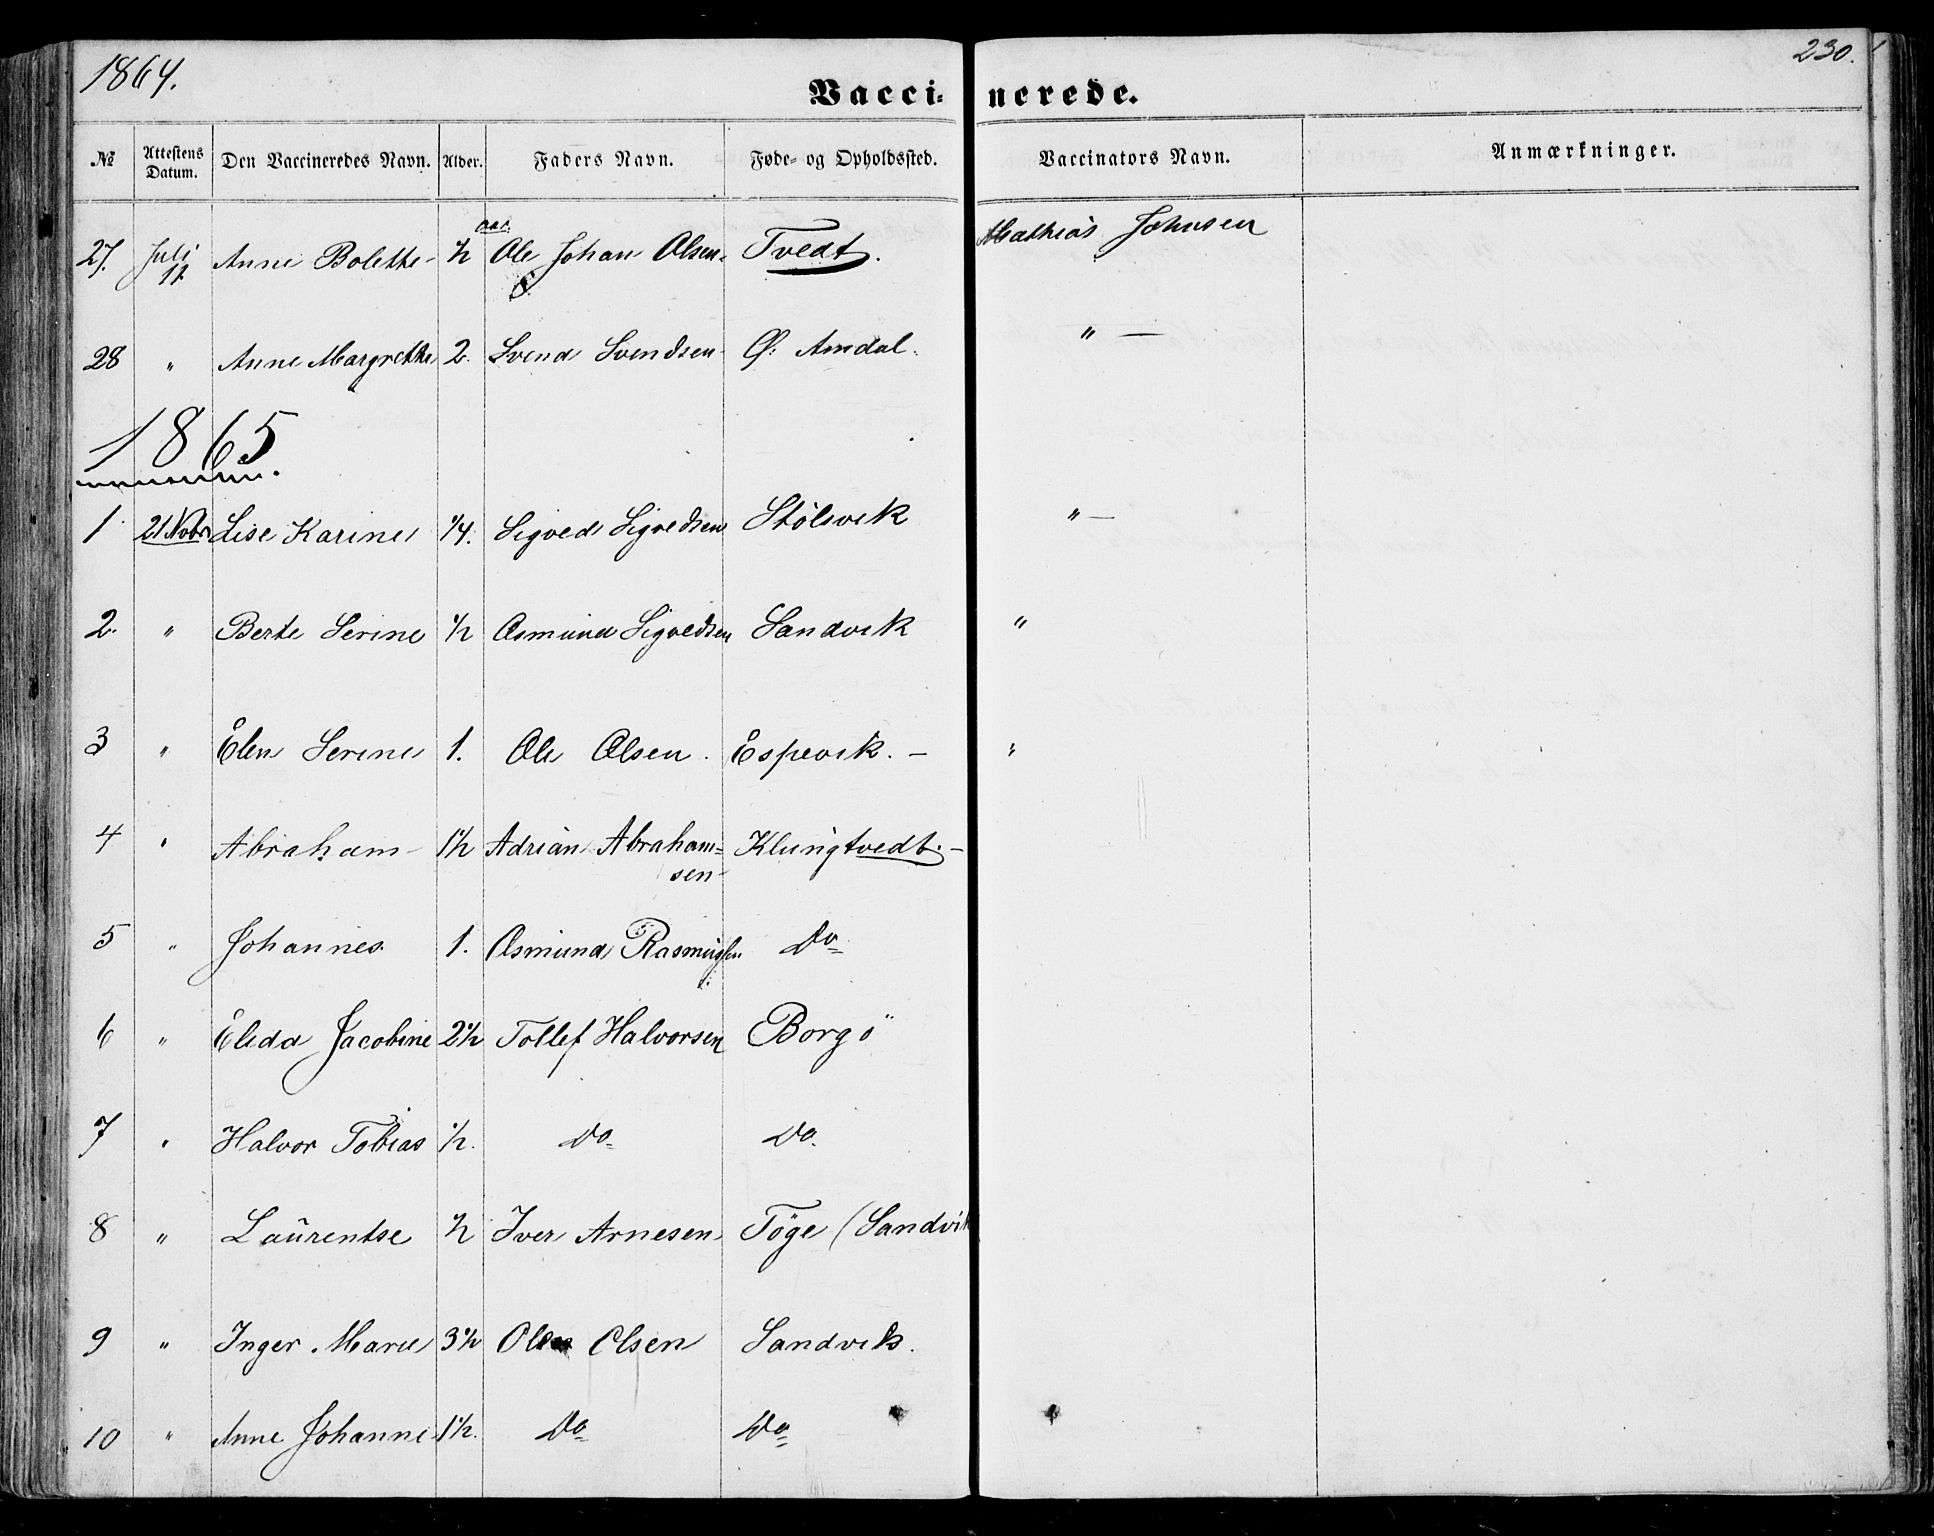 1864.
230.
Vaccinerede.
№ Attestens Datum. Den Vaccineredes Navn. Alder. Faders Navn. Føde- og Opholdssted. Vaccinators Navn. Anmærkninger.
27. Juli 11. Anne Bolette ½ aar. Ole Johan Olsen. Tvedt. Mathias Johnsen
28 " Anne Margrethe 2. Svend Svendsen Ø. Amdal. " —
1865.
1. 21 Nobr Lise Karine ¼. Sigved Sigvedsen Stölsvik " —
2. " Berte Serine ½ Osmund Sigvedsen Sandvik "
3 " Elen Serine 1. Ole Olsen. Espevik. — "
4 " Abraham 1½ Adrian Abraham=
sen Klungtvedt. —
5 " Johannes 1. Osmund Rasmussen Do
6 " Elida Jacobine 2½ Tollef Halvorsen Borgö
7 " Halvor Tobias ½. Do Do.
8 " Laurentse ½ Iver Arnesen Töge (Sandvik
9 " Inger Marie 3½ Ole Olsen Sandvik.
10 " Anne Johanne 1½. Do Do